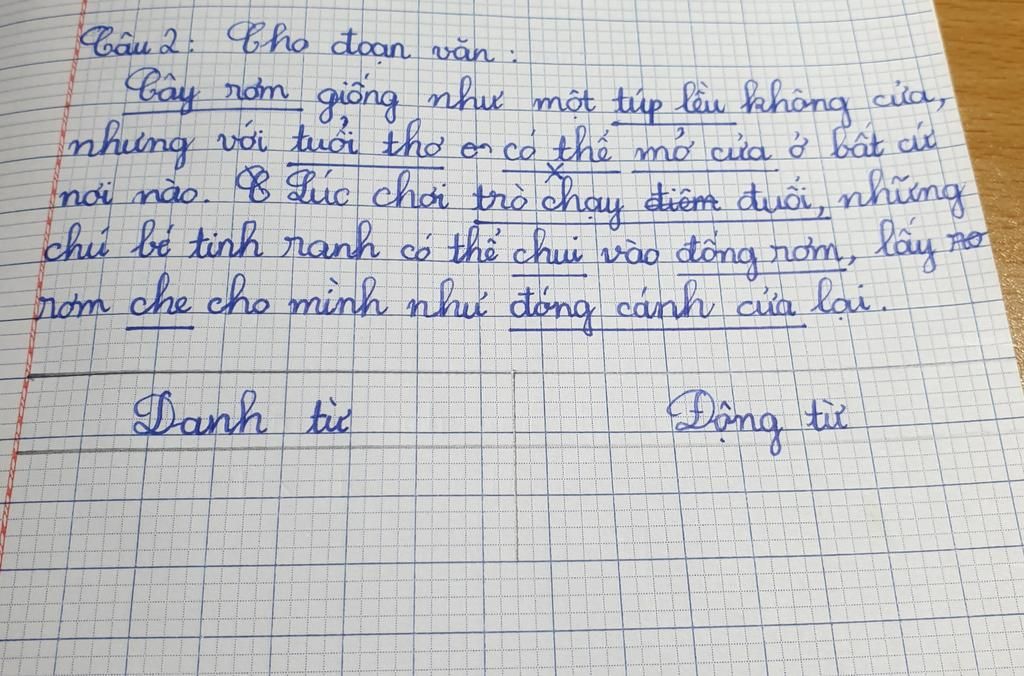 Câu 2: Cho đoạn văn:
Cây rơm giống như một túp lều không cửa,
nhưng với tuổi thơ có thể mở cửa ở bất cứ
nơi nào. Lúc chơi trò chạy điểm đuổi, những
chú bé tinh ranh có thể chui vào đống rơm, lấy
rơm che cho mình như đóng cánh cửa lại.
Danh từ Động từ